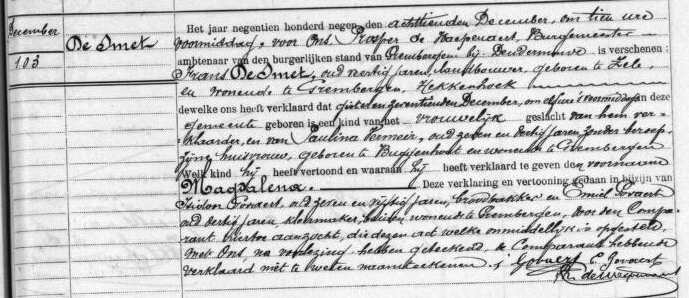 December
103
De Smet
Het jaar negentien honderd negen, den achttienden December, om tien ure
voormiddag, voor Ons, Prosper de Burgemeester
ambtenaar van den burgerlijken stand van Grembergen bij Dendermonde is verschenen:
Frans De Smet, oud veertig jaren, landbouwer, geboren te Zele
en wonende te Grembergen, Hekkenhoek
dewelke ons heeft verklaard dat gisteren zeventienden December, om elf ure 's voormiddags in deze
gemeente geboren is een kind van het vrouwelijk geslacht van hem ver-
klaarder, en van Paulina Vermeir, oud zeven en dertig jaren, zonder beroep,
zijne huisvrouw, geboren te Buggenhout en wonende te Grembergen
Welk kind hij heeft vertoond en waaraan hij heeft verklaard te geven den voornaam
Magdalena. Deze verklaring en vertooning gedaan in bijzijn van
Isidon Govaert, oud zeven en vijftig jaren, broodbakker en Emiel Govaert
oud dertig jaren, kleermaker, beiden wonende te Grembergen, door den Compa-
rant hiertoe aangezocht, die dezen act welke onmiddelijk is opgesteld
met Ons, na voorlezing hebben geteekend, de Comparant hebbende
verklaard niet te weten naamteekenen. Govaert E. Govaert